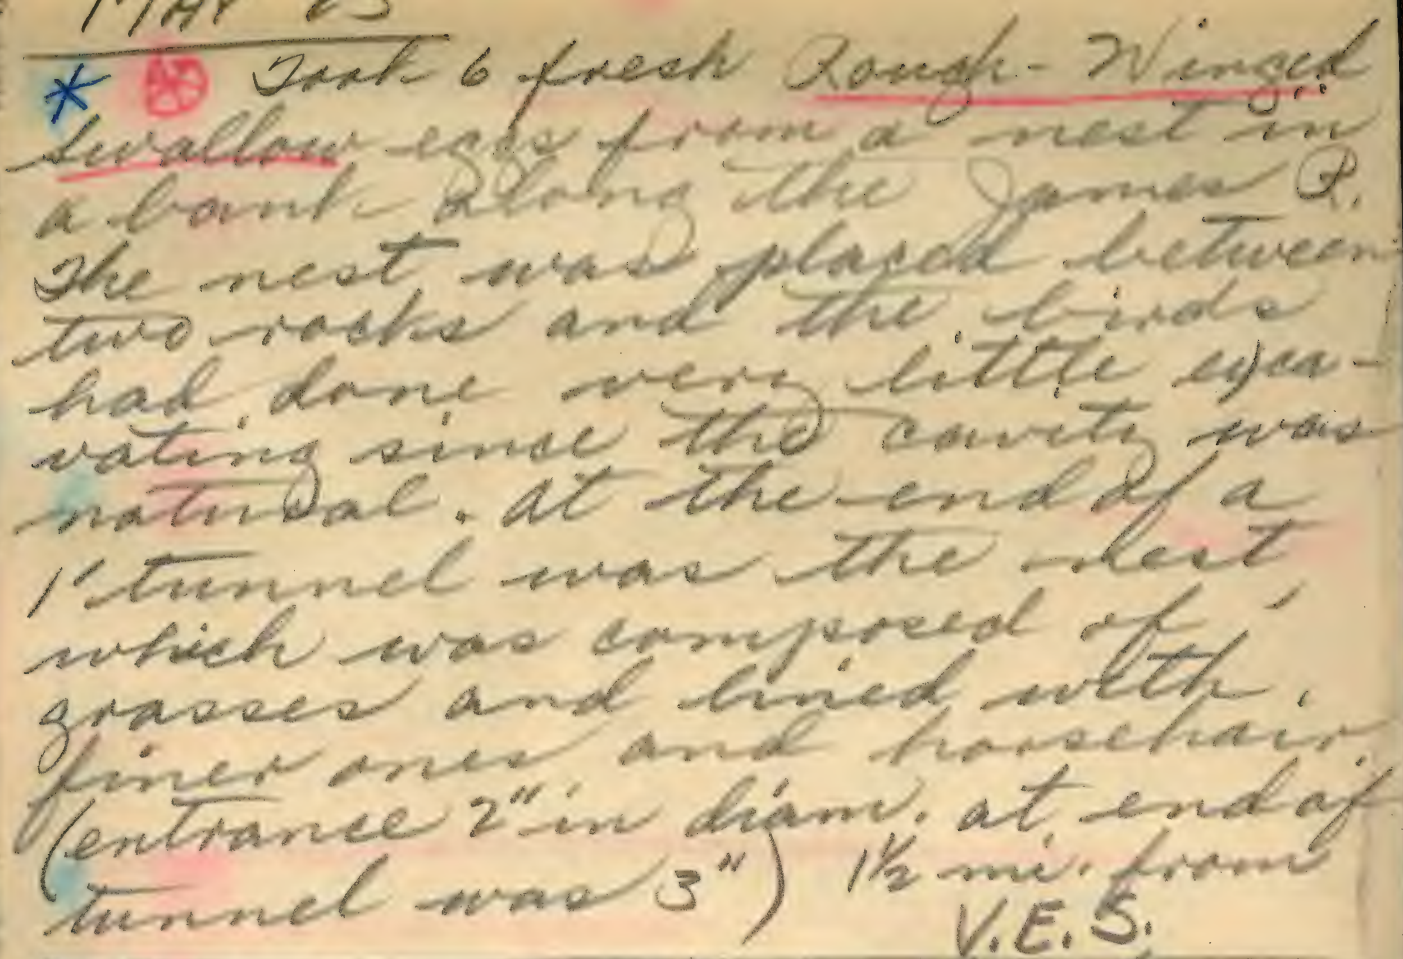 MAY 23
* Took 6 fresh Rough-Winged
Swallow eggs from a nest in
a bank along the James R.
The nest was placed between
two rocks and the birds
had done very little exca-
vating since the cavity was
natural. At the end of a
1' tunnel was the nest,
which was composed of
grasses and lined with
finer ones and horsehair.
(entrance 2" in diam. at end of
tunnel was 3") 1½ mi. from
V.E.S.